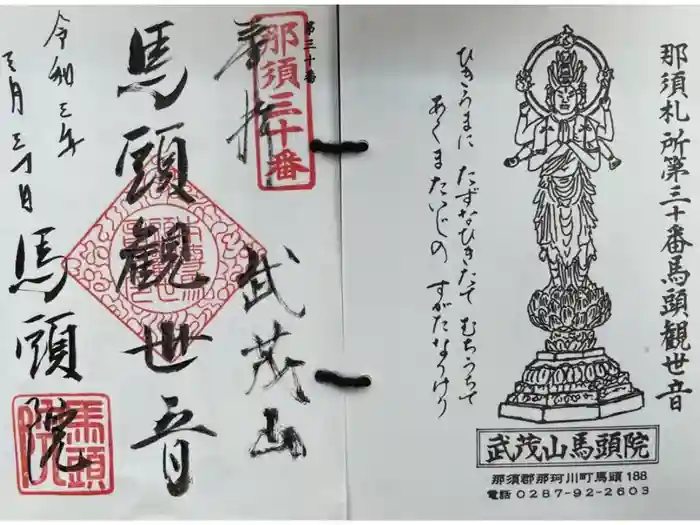 那須札所第三十番馬頭観世音
ひきうまに たずなひきたて むちうちて
あくまたいじの すがたなりけり
武茂山馬頭院
那須郡那珂川町馬頭188
電話 0287-92-2603
第三十番
那須三十番
奉拝
武茂山
馬頭観世音
令和三年
三月三十日
馬頭院
馬頭院